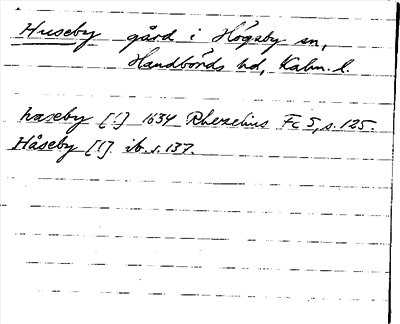 Huseby gård i Högsby sn,
Handbörds hd, Kalm. l.
huseby [!] 1634 Rhezelius Fc 5, s. 125.
Håseby [!] ib. s. 137.